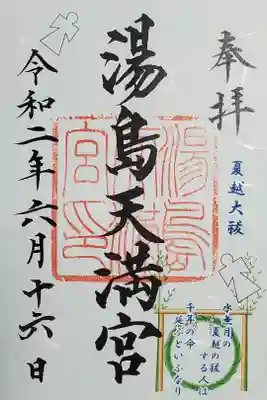 奉拝
夏越大祓
湯島天満宮
湯島天満宮印
令和二年六月十六日
水無月の
夏越の祓
する人は
千年の命
延ぶといふなり